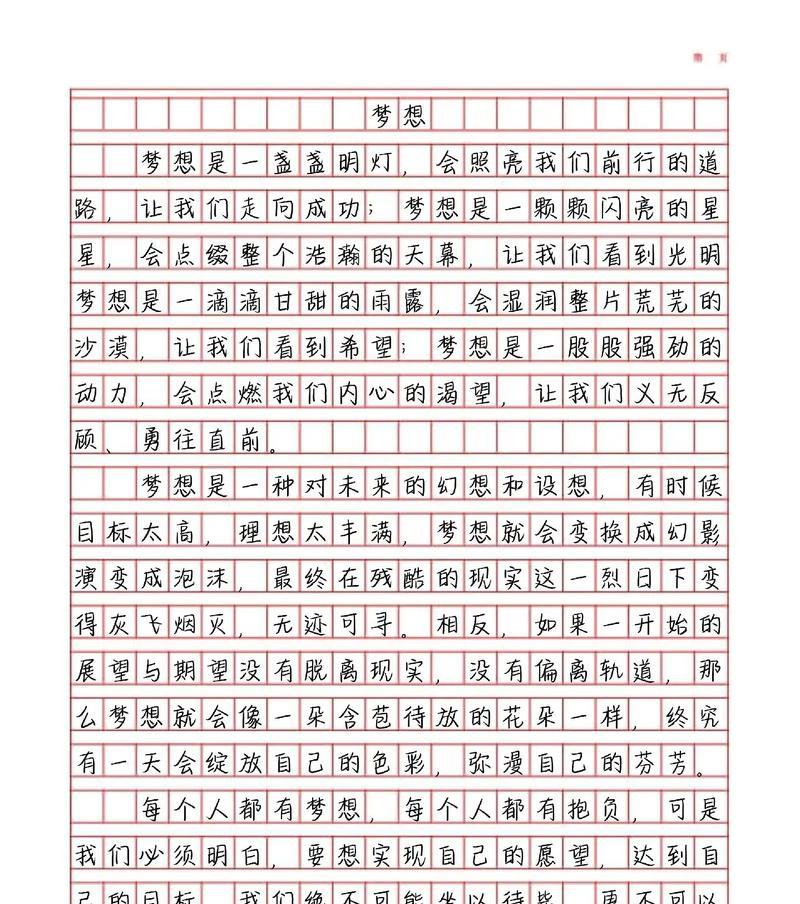 第 页
梦想
梦想是一盏盏明灯，会照亮我们前行的道
路，让我们走向成功；梦想是一颗颗闪亮的星
星，会点缀整个浩瀚的天幕，让我们看到光明
梦想是一滴滴甘甜的雨露，会湿润整片荒芜的
沙漠，让我们看到希望；梦想是一股股强劲的
动力，会点燃我们内心的渴望，让我们义无反
顾、勇往直前。
梦想是一种对未来的幻想和设想，有时候
目标太高，理想太丰满，梦想就会变换成幻影
演变成泡沫，最终在残酷的现实这一烈日下变
得灰飞烟灭，无迹可寻。相反，如果一开始的
展望与期望没有脱离现实，没有偏离轨道，那
么梦想就会像一朵含苞待放的花朵一样，终究
有一天会绽放自己的色彩，弥漫自己的芬芳。
每个人都有梦想，每个人都有抱负，可是
我们必须明白，要想实现自己的愿望，达到自
己的目标，我们绝不可能坐以待毙，更不可以